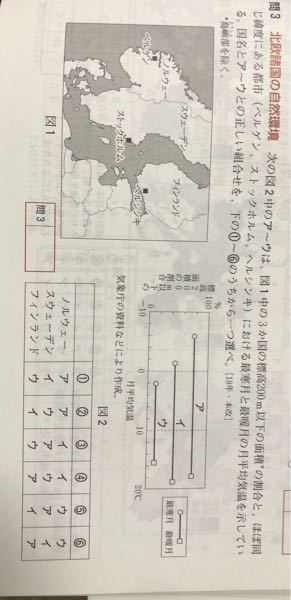 問3 北欧諸国の自然環境　次の図2中のア～ウは，図1中の3か国の標高200m以下の面積*の割合と，ほぼ同
じ緯度にある都市（ベルゲン，ストックホルム，ヘルシンキ）における最寒月と最暖月の月平均気温を示してい
る。国名とア～ウとの正しい組合せを，下の①～⑥のうちから一つ選べ。[18年・本改]
*島嶼部を除く。
ベルゲン
ノルウェー
スウェーデン
フィンランド
ストックホルム
ヘルシンキ
図1
%
100
標高200m以下の面積の割合
ア
イ
ウ
-10 0 10 20℃
月平均気温
最寒月 最暖月
気象庁の資料などにより作成。
図2
問3
① ② ③ ④ ⑤ ⑥
ノルウェー ア ア イ イ ウ ウ
スウェーデン イ ウ ア ウ ア イ
フィンランド ウ イ ウ ア イ ア